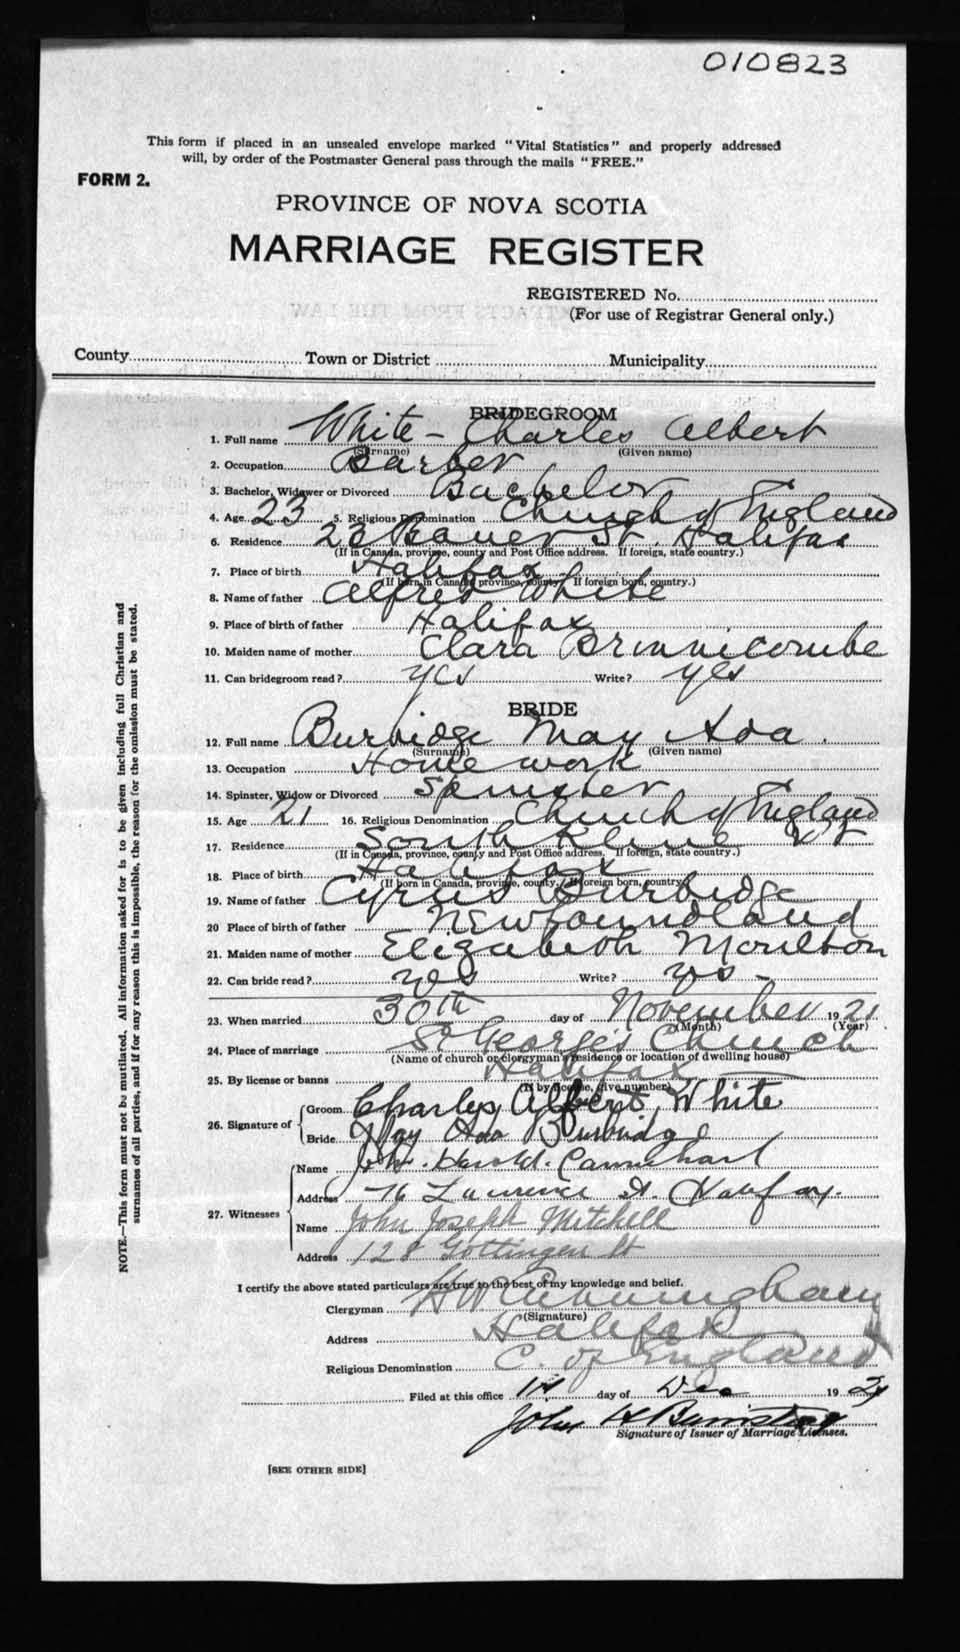 010823
This form if placed in an unsealed envelope marked "Vital Statistics" and properly addressed
will, by order of the Postmaster General pass through the mails "FREE."
FORM 2.
PROVINCE OF NOVA SCOTIA
MARRIAGE REGISTER
REGISTERED No.
(For use of Registrar General only.)
County Town or District Municipality
BRIDEGROOM
1. Full name White - Charles Albert
(Surname) (Given name)
2. Occupation Barber
3. Bachelor, Widower or Divorced Bachelor
4. Age 23 5. Religious Denomination Church of England
6. Residence 23 Bauer St. Halifax
(If in Canada, province, county and Post Office address. If foreign, state country.)
7. Place of birth Halifax
(If born in Canada, province, county. If foreign born, country.)
8. Name of father Alfred White
9. Place of birth of father Halifax
10. Maiden name of mother Clara Brunnicombe
11. Can bridegroom read? yes Write? yes
BRIDE
12. Full name Burbidge May Ada
(Surname) (Given name)
13. Occupation Home work
14. Spinster, Widow or Divorced Spinster
15. Age 21 16. Religious Denomination Church of England
17. Residence South Kline St
(If in Canada, province, county and Post Office address. If foreign, state country.)
18. Place of birth Halifax
(If born in Canada, province, county. If foreign born, country)
19. Name of father Cyrus Burbidge
20 Place of birth of father Newfoundland
21. Maiden name of mother Elizabeth Moulton
22. Can bride read? yes Write? yes -
23. When married 30th day of November 1921
(Month) (Year)
24. Place of marriage St George's Church
(Name of church or clergyman's residence or location of dwelling house)
Halifax
25. By license or banns
(If by license, give number)
26. Signature of Groom Charles Albert White
Bride May Ada Burbidge
27. Witnesses Name Harold
Address 76 Lawrence St. Halifax.
Name John Joseph Mitchell
Address 128 Gottingen St
I certify the above stated particulars are true to the best of my knowledge and belief.
Clergyman H W Cunningham
(Signature)
Address Halifax
Religious Denomination C. of England
Filed at this office 14 day of Dec 1921
John H
Signature of Issuer of Marriage Licenses.
[SEE OTHER SIDE]
NOTE.—This form must not be mutilated. All information asked for is to be given including full Christian and
surnames of all parties, and if for any reason this is impossible, the reason for the omission must be stated.